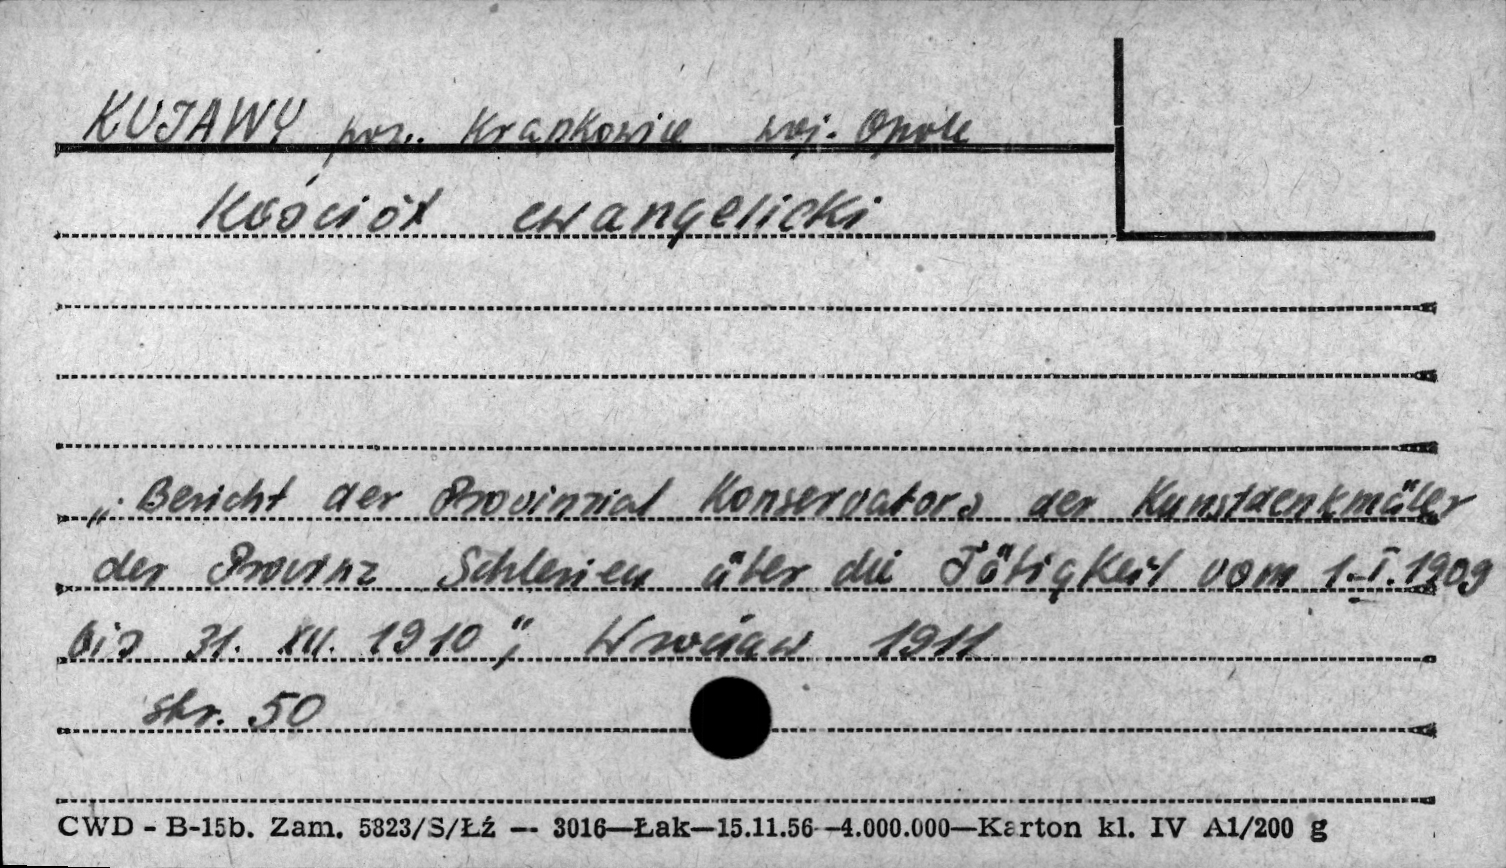 KUJAWY pow. Krapkowice woj. Opole
Kościół ewangelicki
„Bericht der Provinzial Konservators der Kunstdenkmäler
der Provinz Schlesien über die Tätigkeit vom 1.I.1909
bis 31. XII. 1910", Wrocław 1911
str. 50
CWD - B-15b. Zam. 5823/S/Łź — 3016—Łak—15.11.56—4.000.000—Karton kl. IV A1/200 g